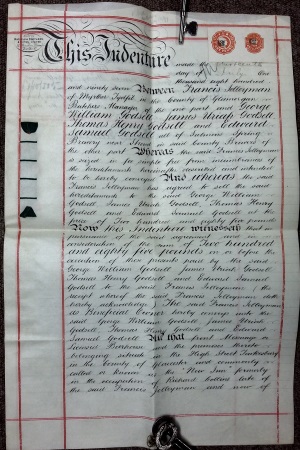 This Indenture made the
day of July One
thousand eight hundred
and ninety seven Between Francis Jelleyman
of Merthyr Tydfil in the County of Glamorgan in
Manager of the one part and George
William Godsell James Uriah Godsell
Thomas Henry Godsell and Edward
Samuel Godsell all of Salmon Spring
Brewery near Stroud in said County of
the other part Whereas the said Francis Jelleyman
is seized in fee simple free from incumbrances of
the hereditaments hereinafter described and intended
to be hereby conveyed And whereas the said
Francis Jelleyman has agreed to sell the said
hereditaments to the said George William
Godsell James Uriah Godsell, Thomas Henry
Godsell and Edward Samuel Godsell at the
price of Two hundred and eighty five pounds
Now this Indenture witnesseth that in
pursuance of the said agreement and in
consideration of the sum of Two hundred
and eighty five pounds on or before the
execution of these presents paid by the said
George William Godsell James Uriah Godsell
Thomas Henry Godsell and Edward Samuel
Godsell to the said Francis Jelleyman (the
receipt whereof the said Francis Jelleyman doth
hereby acknowledge) The said Francis Jelleyman
as Beneficial Owner hereby conveys unto the
said George William Godsell James Uriah
Godsell Thomas Henry Godsell and Edward
Samuel Godsell All that front Messuage or
Tenement and the premises thereto
belonging situate in the High Street Tewkesbury
in the County of Gloucester and commonly
called or known as the "New Inn" formerly
in the occupation of Richard late of
the said Francis Jelleyman and now of